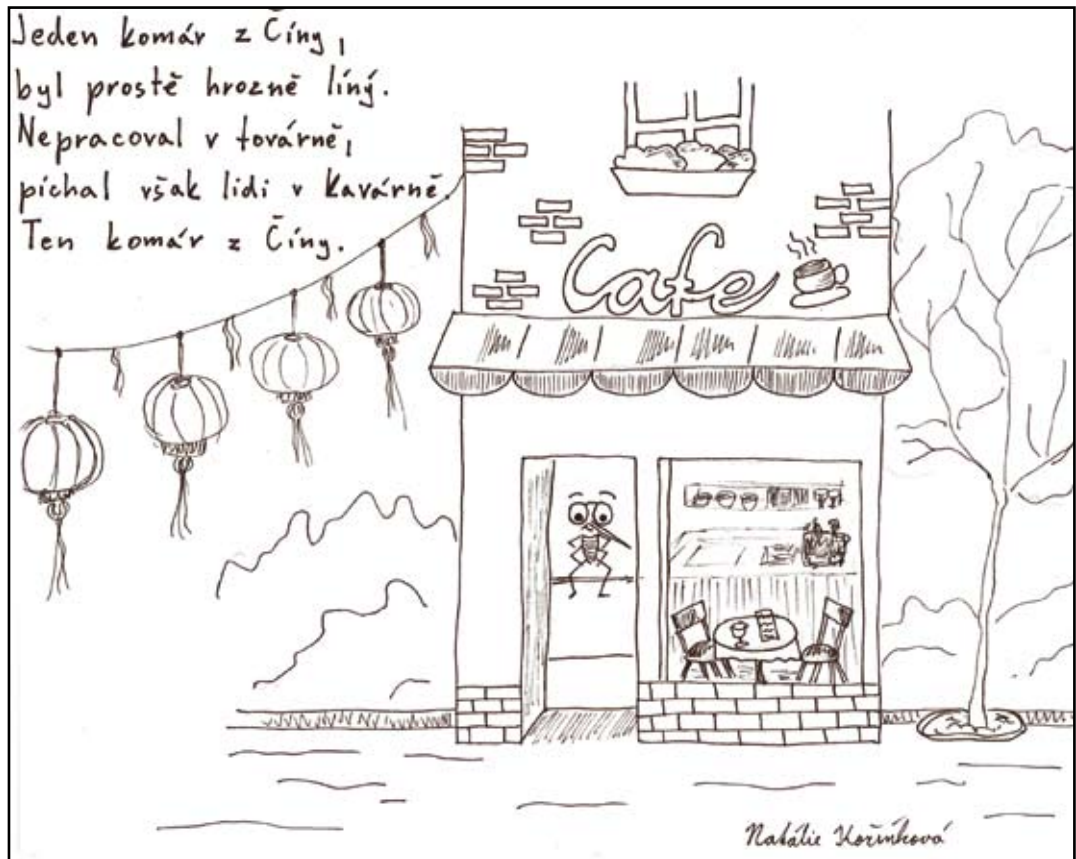 Jeden komár z Číny,
byl prostě hrozně líný.
Nepracoval v továrně,
píchal však lidi v kavárně.
Ten komár z Číny.
Cafe
Natálie Kořínková